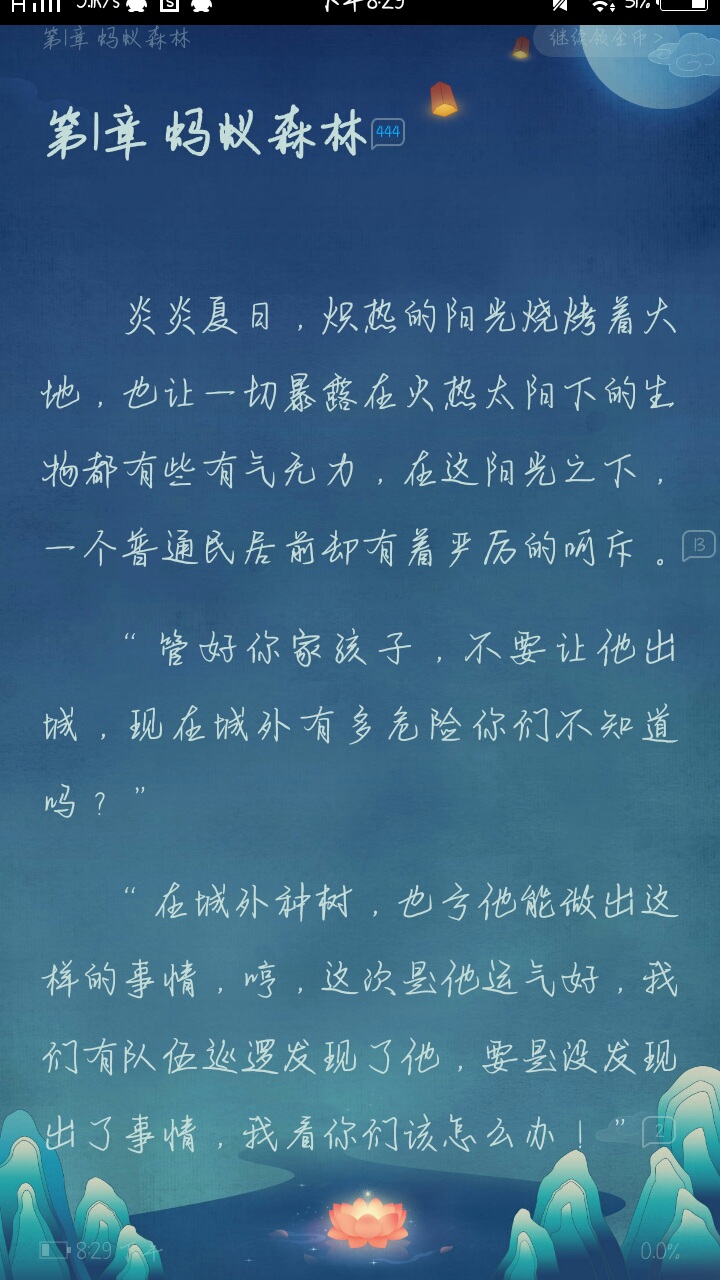 第1章 蚂蚁森林
继续领金币>
第1章 蚂蚁森林 444
炎炎夏日，炽热的阳光烧烤着大
地，也让一切暴露在火热太阳下的生
物都有些有气无力，在这阳光之下，
一个普通民居前却有着严厉的呵斥。 13
“管好你家孩子，不要让他出
城，现在城外有多危险你们不知道
吗？”
“在城外种树，也亏他能做出这
样的事情，哼，这次是他运气好，我
们有队伍巡逻发现了他，要是没发现
出了事情，我看你们该怎么办！” 2
8:29 下午
0.0%